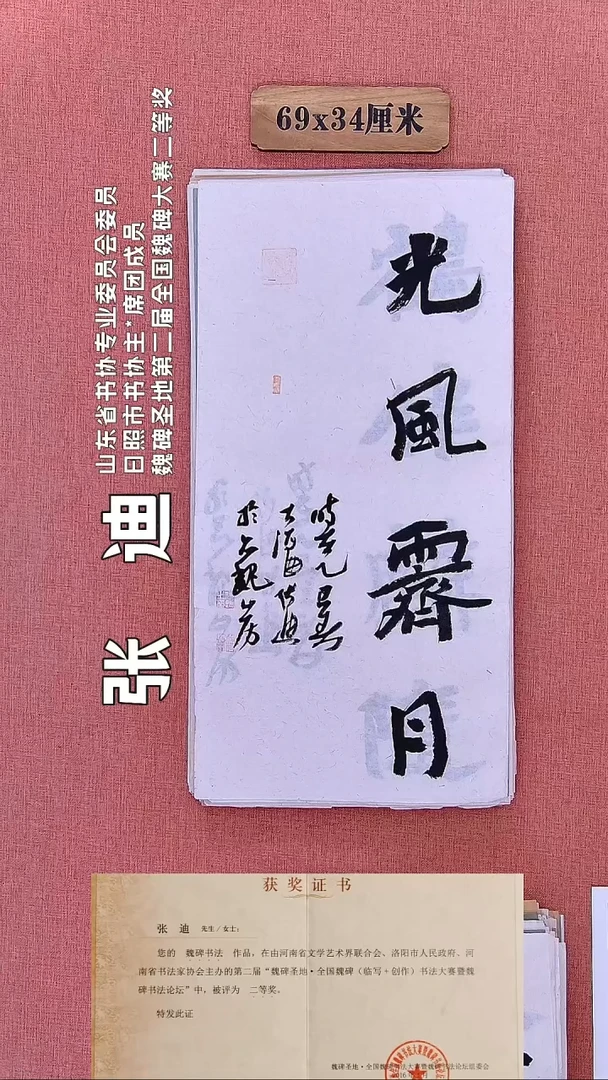 69x34厘米
山东省书协专业委员会委员
日照市书协主*席团成员
魏碑圣地第二届全国魏碑大赛二等奖
张 迪
光風霽月
时在乙巳春
大河西张迪
於上觀山房
获奖证书
张 迪 先生/女士:
您的 魏碑书法 作品,在由河南省文学艺术界联合会、洛阳市人民政府、河
南省书法家协会主办的第二届“魏碑圣地·全国魏碑(临写+创作)书法大赛暨魏
碑书法论坛”中,被评为 二等奖。
特发此证
魏碑圣地·全国魏碑书法大赛暨魏碑书法论坛组委会